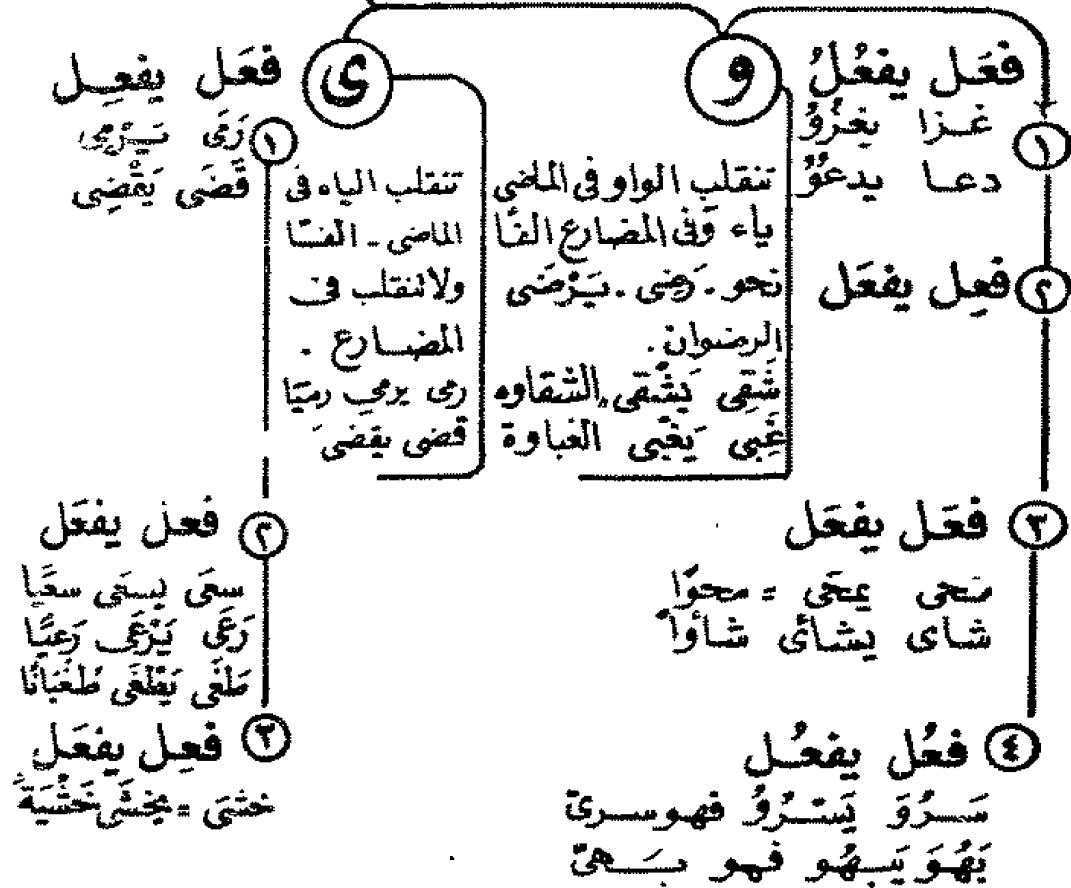 و
١ فعَل يفعُلُ
غـزا يغزُوُ
دعـا يدعُوُ
٢ فعِل يفعَل
تنقلب الواو فى الماضى
ياء وَفى المضارع الفًا
نحو . رَضِى . يَـرْضَى
الرضوان .
شَقِى يَشْقى الشقاوه
غَبِى يَغْبى الغباوة
٣ فعَل يفعَل
محى يمحَى = محوًا
شاى يشائى شأوًا
٤ فعُل يفعُـل
سَـرُوَ يَسْـرُوُ فهو سرىّ
بَهُوَ يَبـهُو فهو بـهىّ
ى
١ فعَل يفعِـل
رَمَى يَـرْمِى
قَضَى يَقْضِى
تنقلب الياء فى
الماضى - الفـًا
ولا تنقلب فى
المضـارع .
رمى يرمى رميًا
قضى يقضى
٢ فعل يفعَل
سعَى يسعَى سعْيًا
رَعَى يَرْعَى رَعيًا
طَغَى يَطْغَى طُغْيَانًا
٣ فعِل يفعَل
خشىَ = يخشَى خَشْيَةً